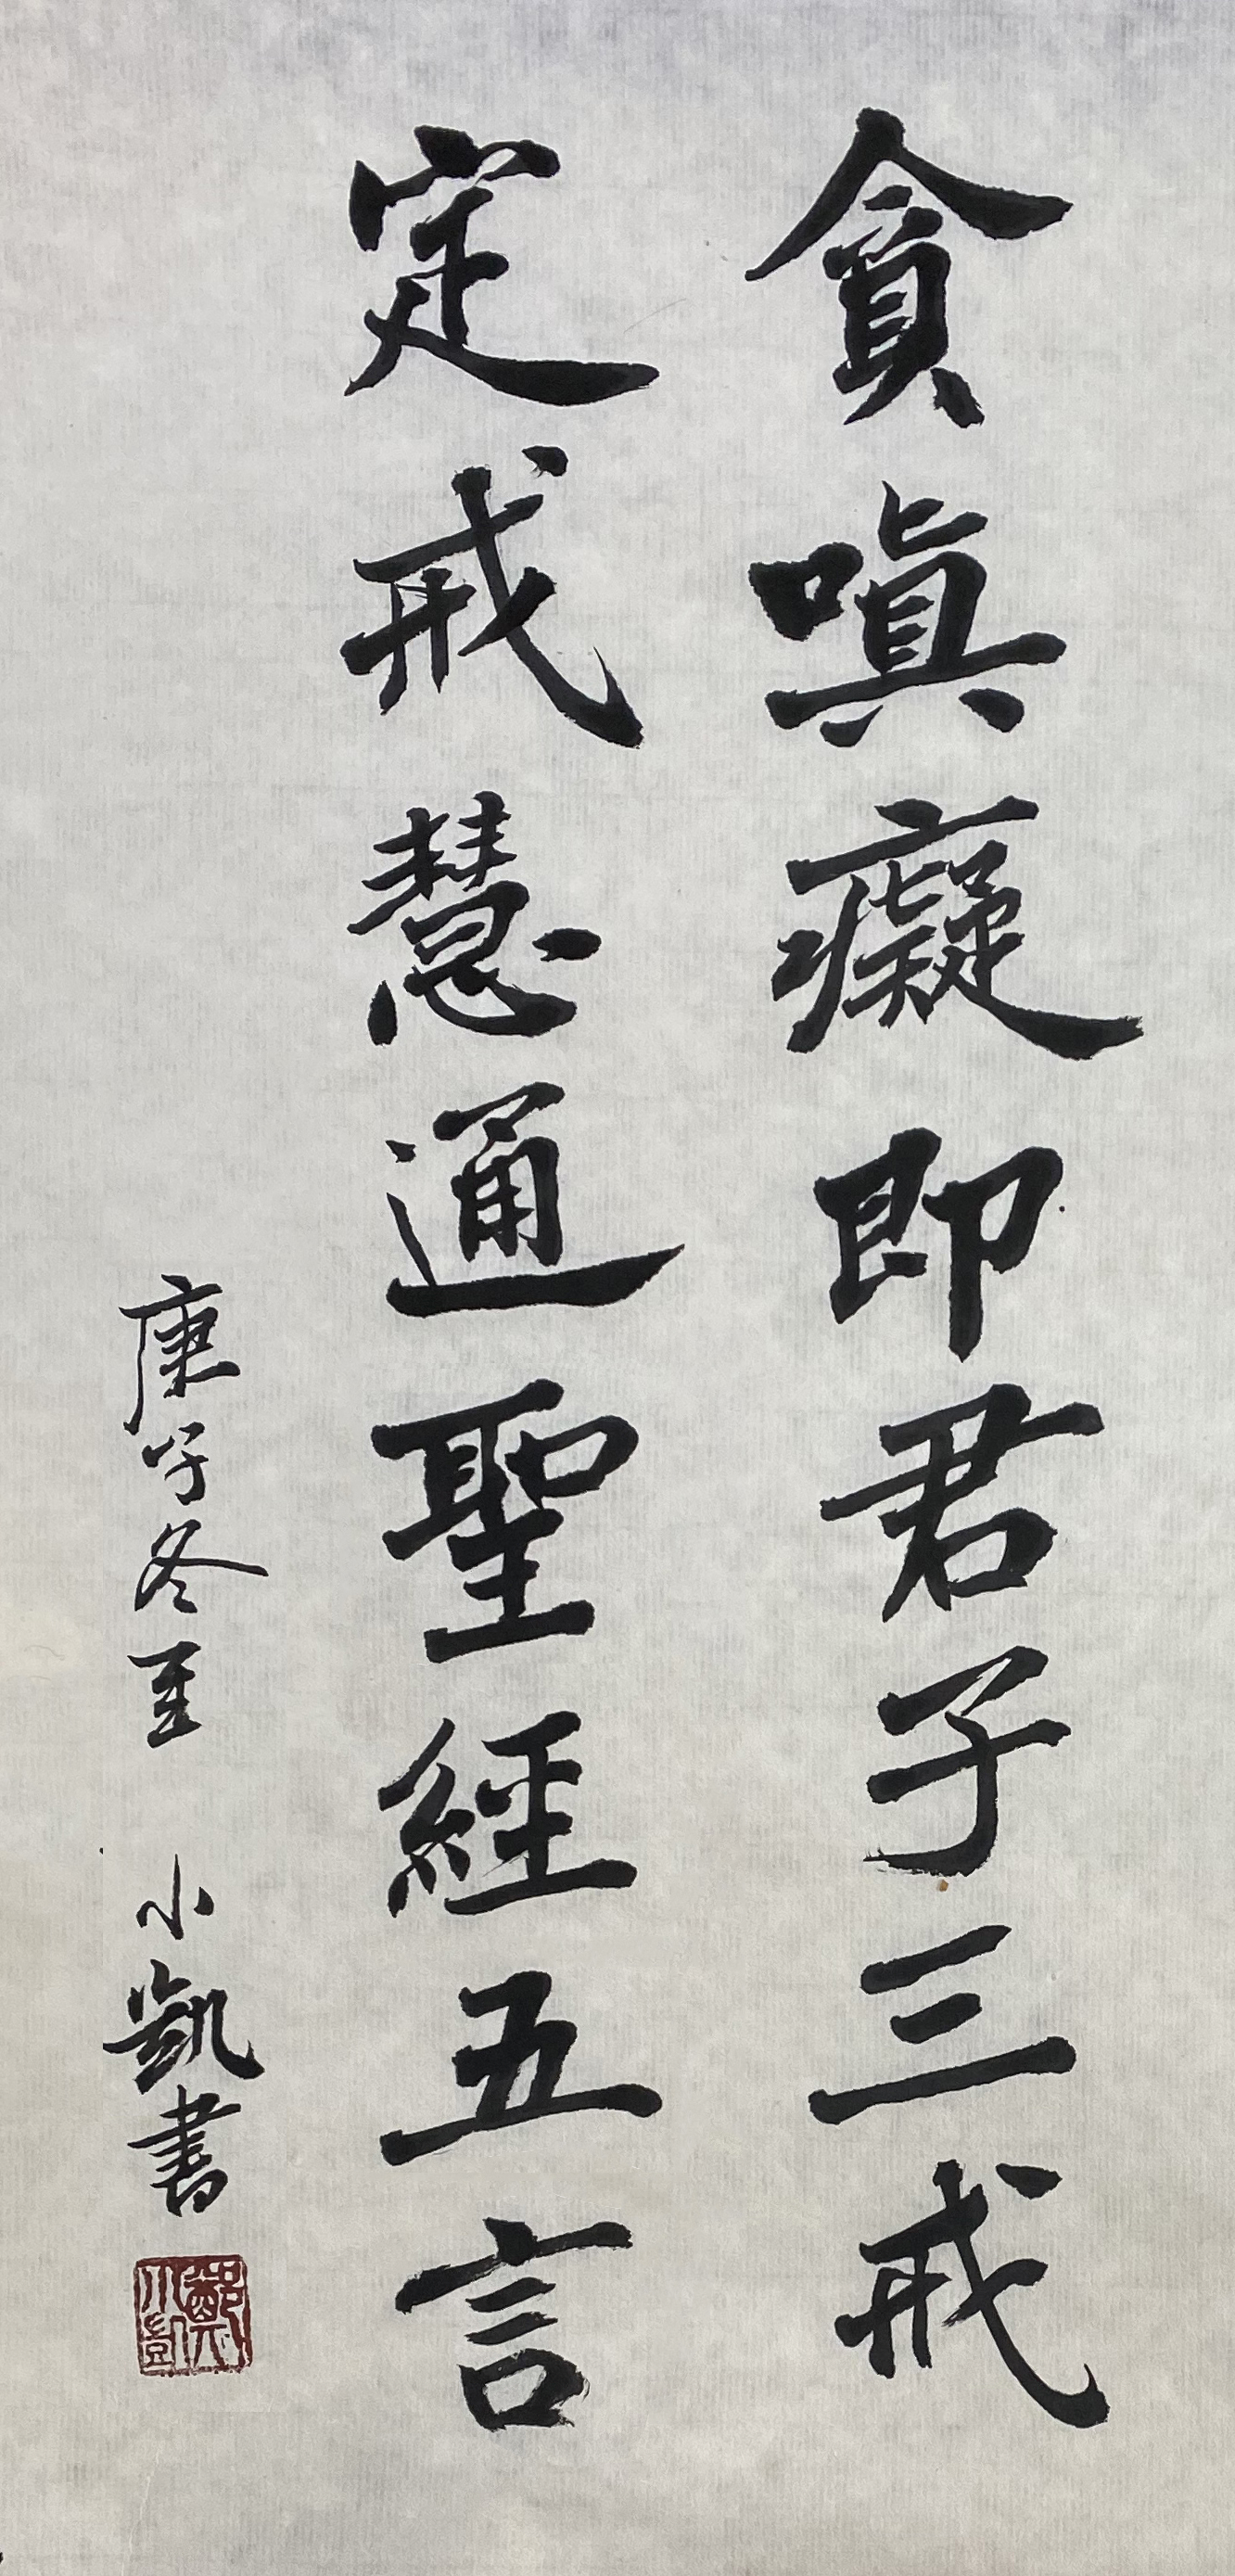 貪嗔癡即君子三戒
定戒慧通聖經五言
庚子冬至 小凱書
鄭小凱